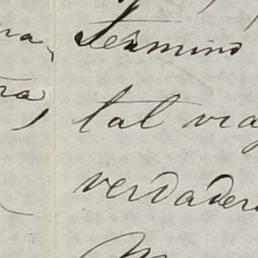 na, termino
ra, tal via
verdader